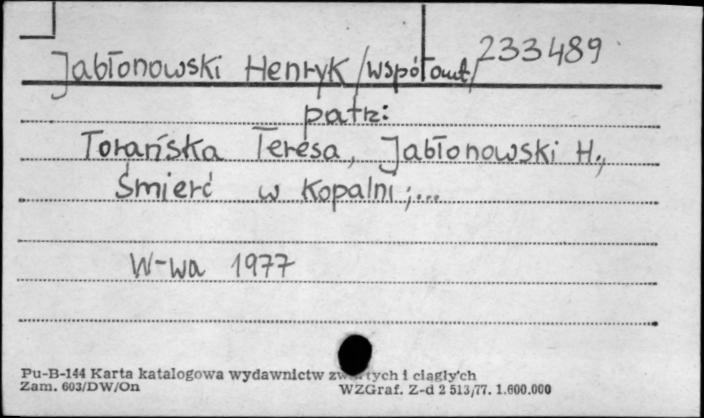 Jabłonowski Henryk /współaut/ 233489
patrz:
Torańska Teresa, Jabłonowski H.,
Śmierć w Kopalni;...
W-wa 1977
Pu-B-144 Karta katalogowa wydawnictw zwartych i ciągłych
Zam. 603/DW/On WZGraf. Z-d 2 513/77. 1.600.000